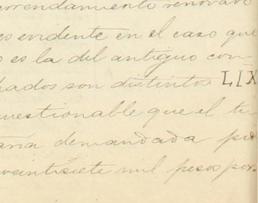 orrendamiento renovado
es evidente en el caso que
o es la del antiguo con-
hados son distintos LIX
uestionable que el ti-
aria demandada por
veintisiete mil pesos por.